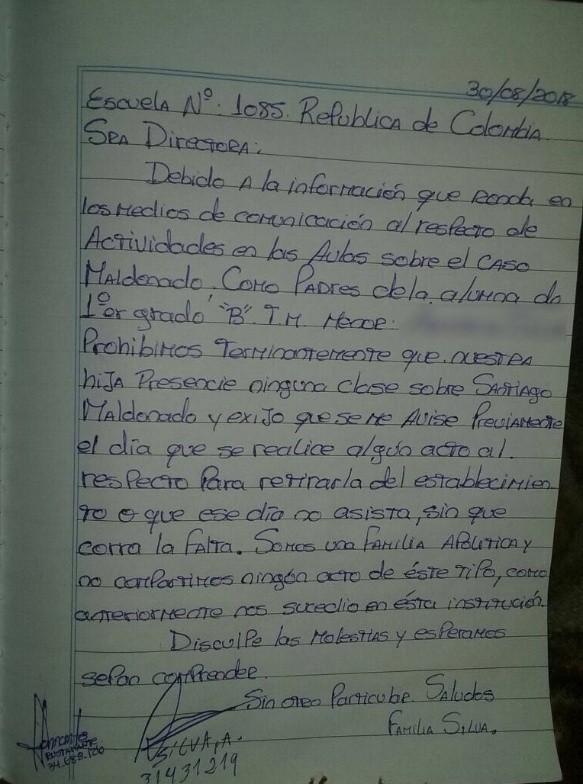 30/08/2018
Escuela Nº. 1085. Republica de Colombia
Sra Directora:
Debido a la información que ronda en
los medios de comunicación al respecto de
Actividades en las Aulas sobre el caso
Maldonado. Como Padres de la alumna de
1ºer grado "B". T.M. Menor:
Prohibimos Terminantemente que nuestra
hija Presencie ninguna clase sobre Santiago
Maldonado y exijo que se me Avise Previamente
el día que se realice algún acto al
respecto Para retirarla del establecimien
to o que ese día no asista, sin que
corra la Falta. Somos una Familia Apolitica y
no compartimos ningún acto de éste Tipo, como
anteriormente nos sucedio en ésta institución.
Disculpe las Molestias y esperamos
sepan comprender.
Sin otro Particular. Saludos
Familia Silva.
SILVA, A.
31431219